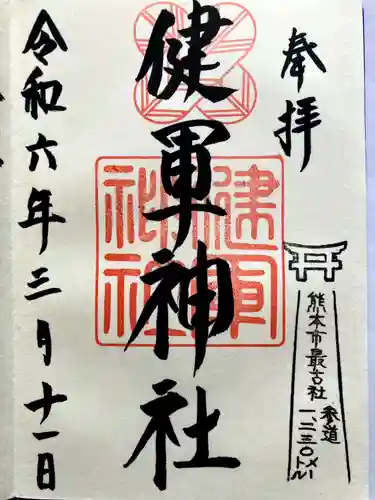 奉拝
健軍神社
令和六年三月十一日
熊本市最古社
参道
一、二三〇メートル
健軍
神社